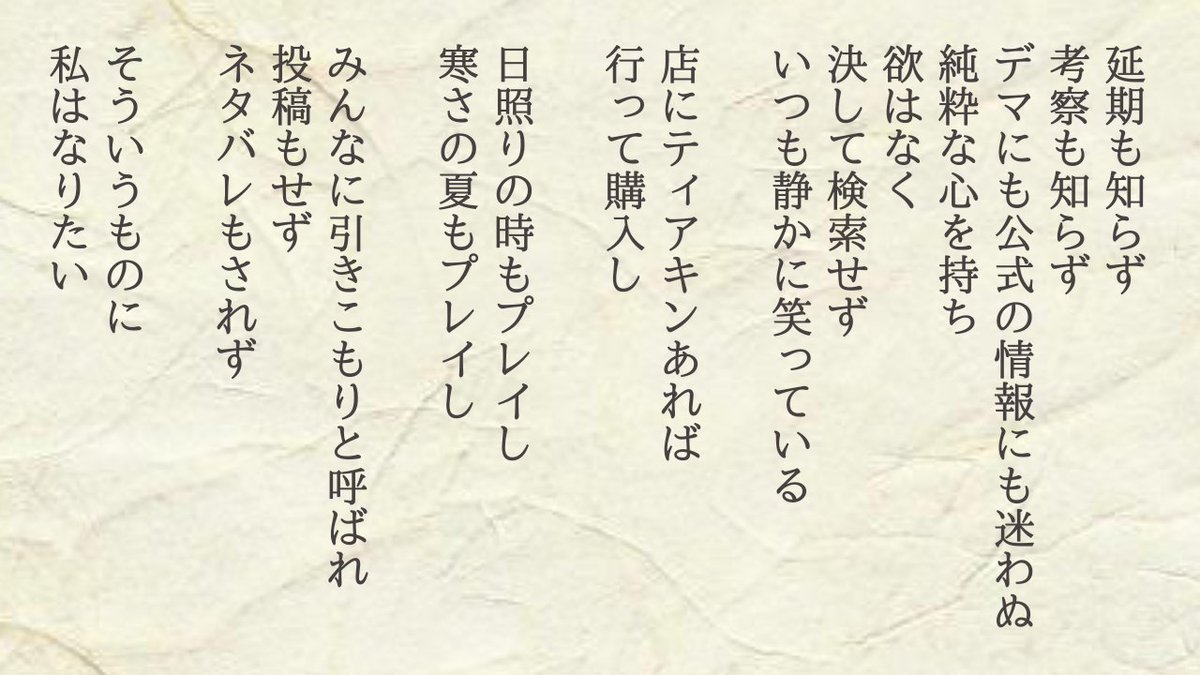 延期も知らず
考察も知らず
デマにも公式の情報にも迷わぬ
純粋な心を持ち
欲はなく
決して検索せず
いつも静かに笑っている
店にティアキンあれば
行って購入し
日照りの時もプレイし
寒さの夏もプレイし
みんなに引きこもりと呼ばれ
投稿もせず
ネタバレもされず
そういうものに
私はなりたい